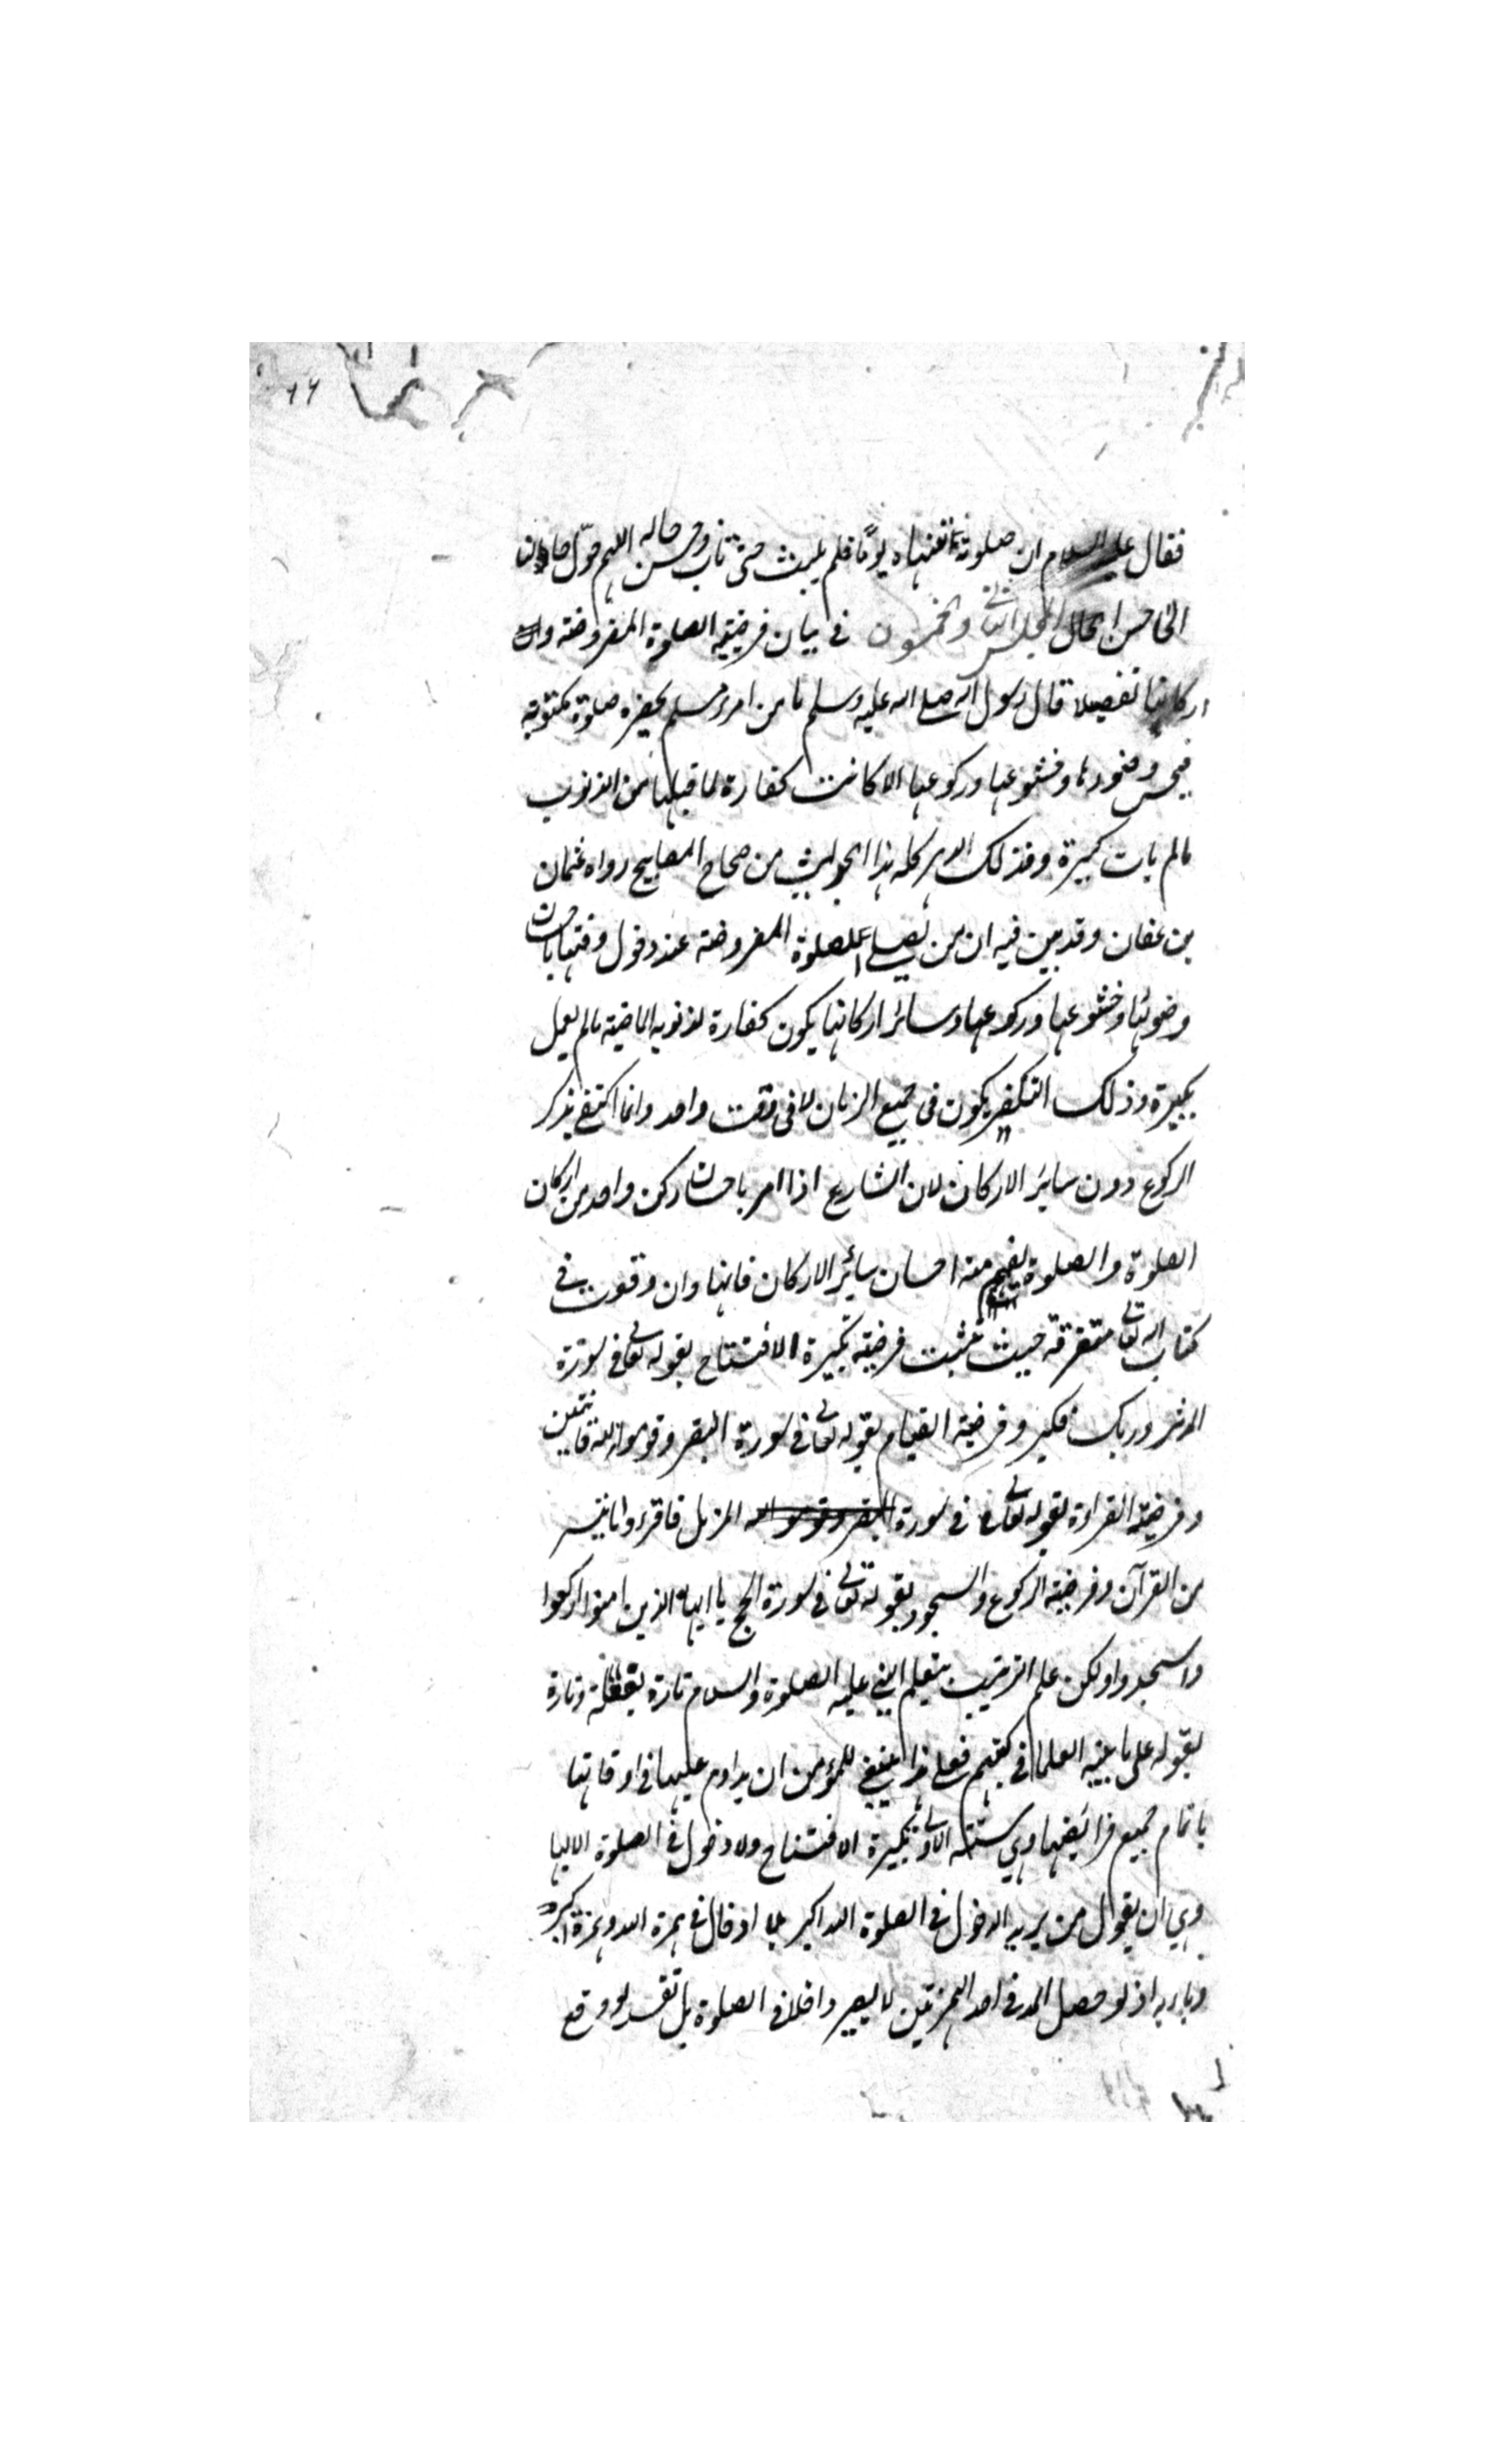 ٦٦
فقال عليه السلام ان صلوته تنهاه يومًا فلم يلبث حتى تاب وحسن حاله اللهم حوّل حالنا
الى احسن الحال المجلس الثاني والخمسون في بيان فرضية الصلوة المفروضة وان
اركانها تفصيلا قال رسول الله صلى الله عليه وسلم ما من امرء مسلم يحضره صلوة مكتوبة
فيحسن وضوءها وخشوعها وركوعها الا كانت كفارة لما قبلها من الذنوب
مالم يأت كبيرة وذلك الدهر كله هذا الحديث من صحاح المصابيح رواه عثمان
بن عفان وقد بين فيه ان من يصلى الصلوة المفروضة عند دخول وقتها باحسان
وضوئها وخشوعها وركوعها وسائر اركانها يكون كفارة لذنوبه الماضية مالم يعمل
بكبيرة وذلك التكفير يكون فى جميع الزمان لا فى وقت واحد وانما اكتفى بذكر
الركوع دون سائر الاركان لان الشارع اذا امر باحسان ركن واحد من اركان
الصلوة والصلوة يفهم منه احسان سائر الاركان فانها وان وقعت في
كتاب الله تعالى متفرقة حيث تثبت فرضية تكبيرة الافتتاح بقوله تعالى فى سورة
المدثر وربك فكبر وفرضية القيام بقوله تعالى فى سورة البقر وقوموا لله قانتين
وفرضية القراءة بقوله تعالى فى سورة البقر وقوموا لله المزمل فاقرءوا ما تيسر
من القرآن وفرضية الركوع والسجود بقوله تعالى فى سورة الحج يا ايها الذين امنوا اركعوا
واسجدوا ولكن علم الترتيب بتعليم النبي عليه الصلوة والسلام تارة بفعله وتارة
بقوله على ما بينه العلما فى كتبهم فعلى هذا ينبغي للمؤمن ان يداوم عليها فى اوقاتها
باتمام جميع فرائضها وهي ستة الاولى تكبيرة الافتتاح ولا دخول في الصلوة الا بها
وهي ان يقول من يريد الدخول في الصلوة الله اكبر بلا ادخال في همزة الله وهمزة اكبر
وباءبه اذ لو حصل المد فى احد الهمزتين لا يصير داخلا فى الصلوة بل تفسد لو وقع